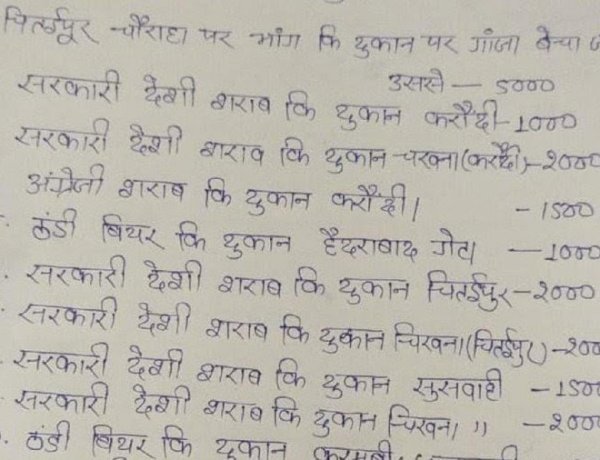 चितईपूर चौराहा पर भांग कि दुकान पर गांजा बेचा
उससे — 5000
सरकारी देशी शराब कि दुकान करौंदी - 1000
सरकारी देशी शराब कि दुकान चखना (करौंदी) - 2000
अंग्रेजी शराब कि दुकान करौंदी। - 1500
ठंडी बियर कि दुकान हैदराबाद गेट। — 1000
सरकारी देशी शराब कि दुकान चितईपुर - 2000
सरकारी देशी शराब कि दुकान चिखना (चितईपुर) - 200
सरकारी देशी शराब कि दुकान सुसवाही - 150
सरकारी देशी शराब कि दुकान चिखना " - 2000
ठंडी बियर कि दुकान